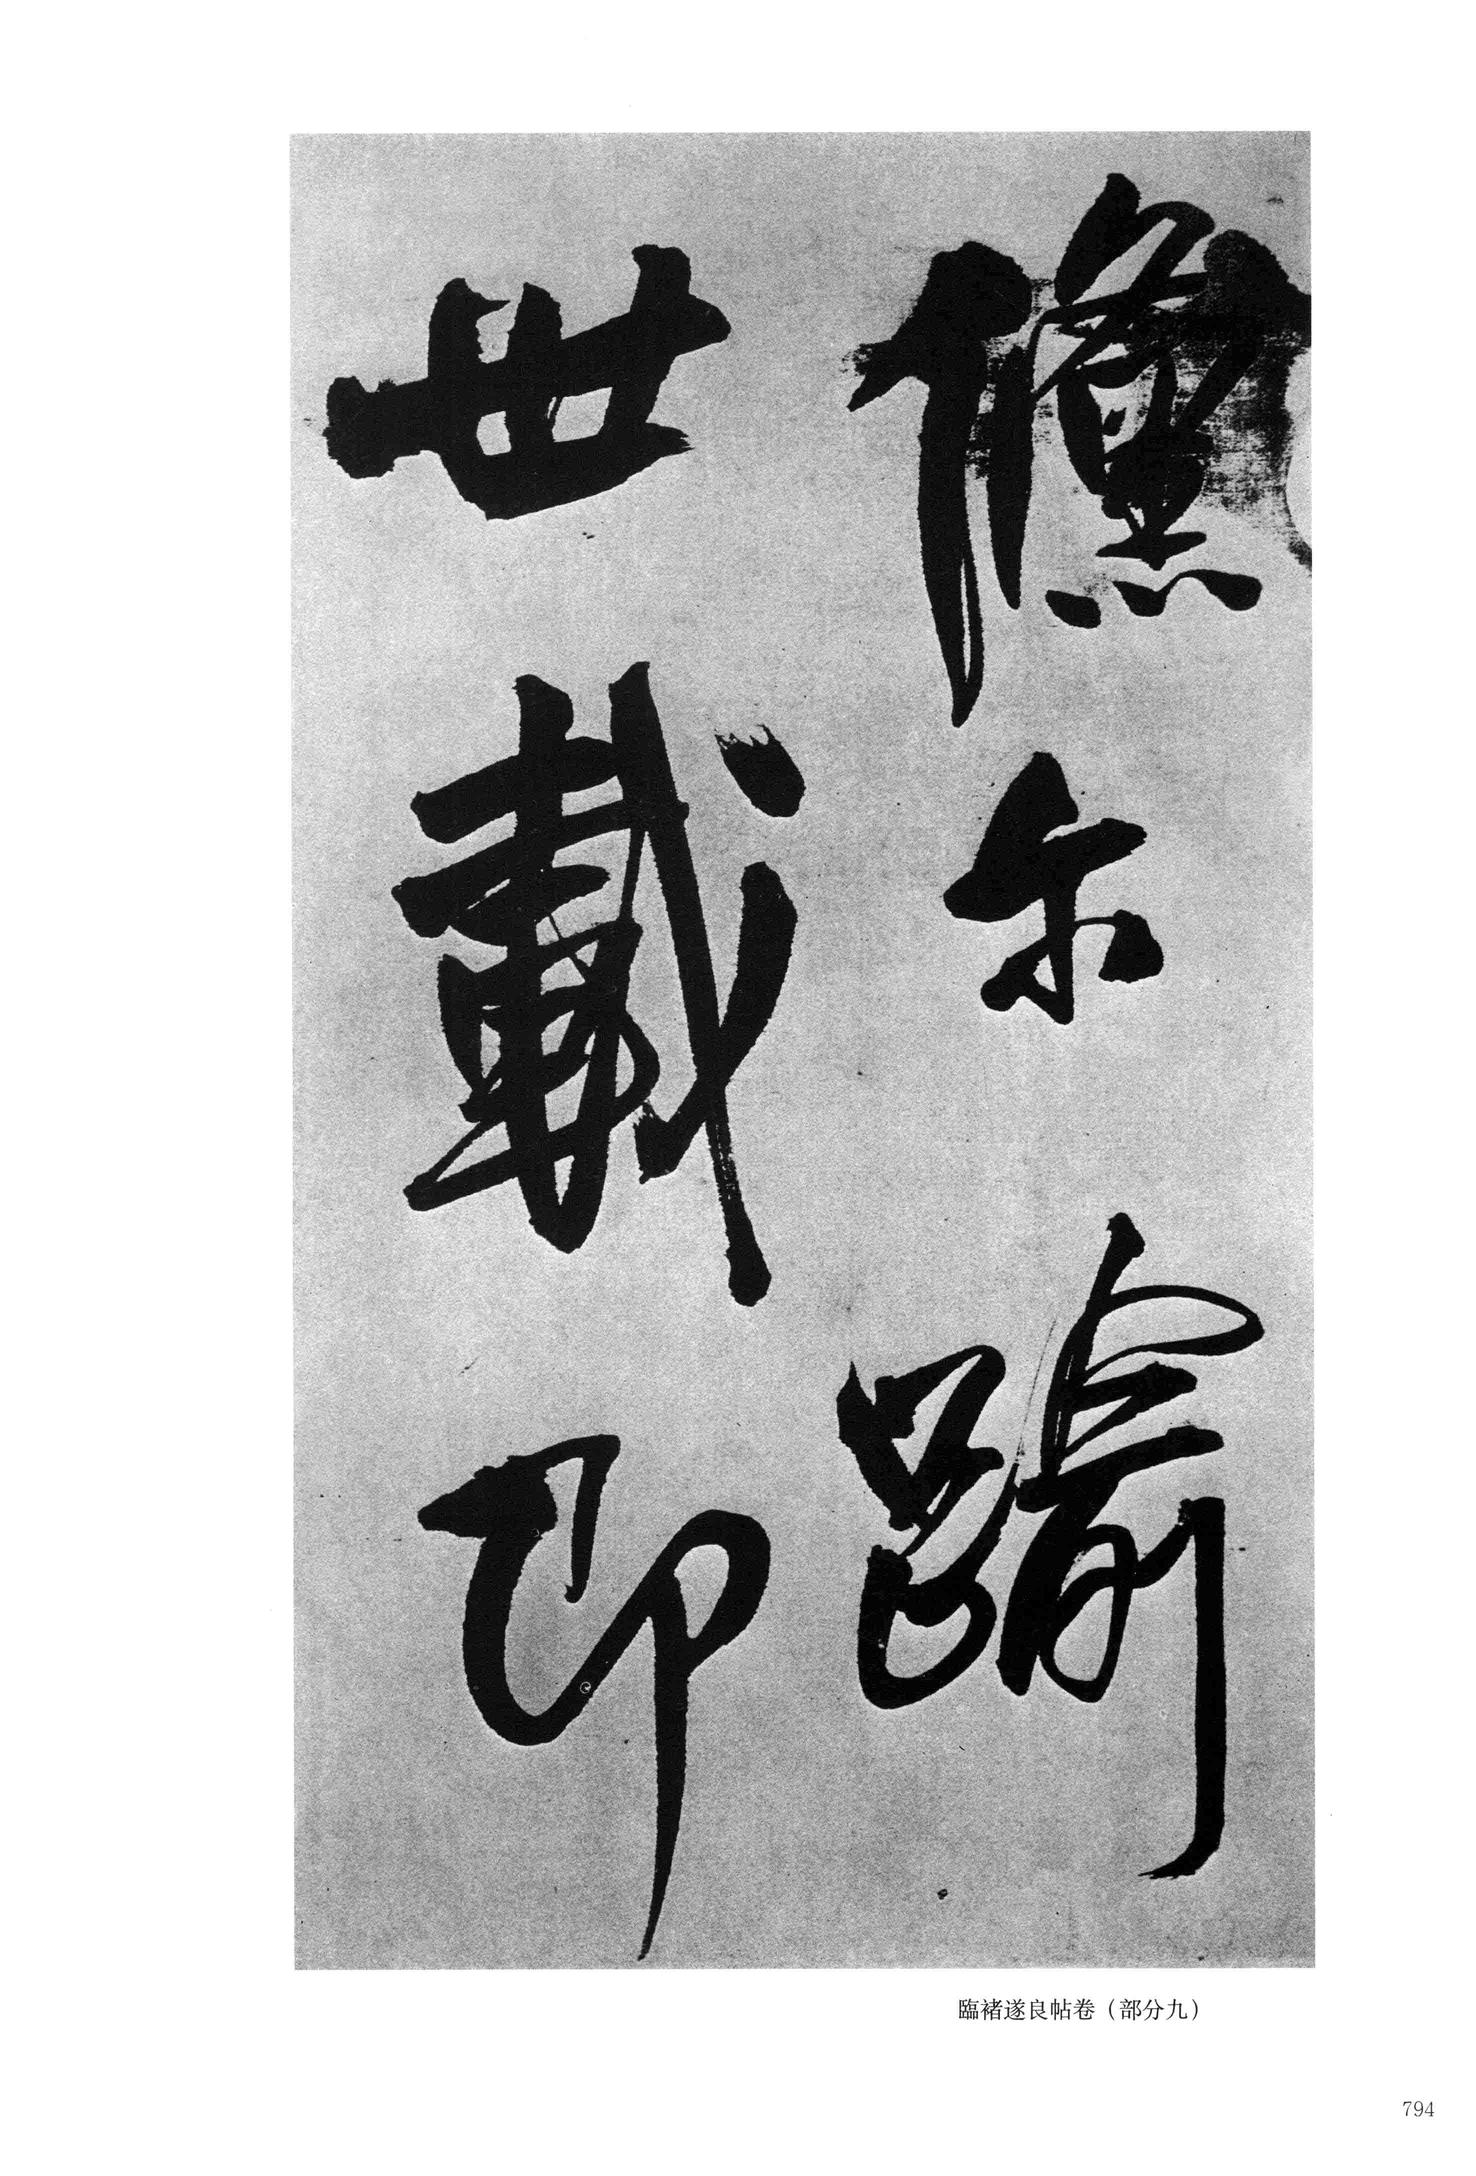 儵尔踰
卅載即
臨褚遂良帖卷（部分九）
794